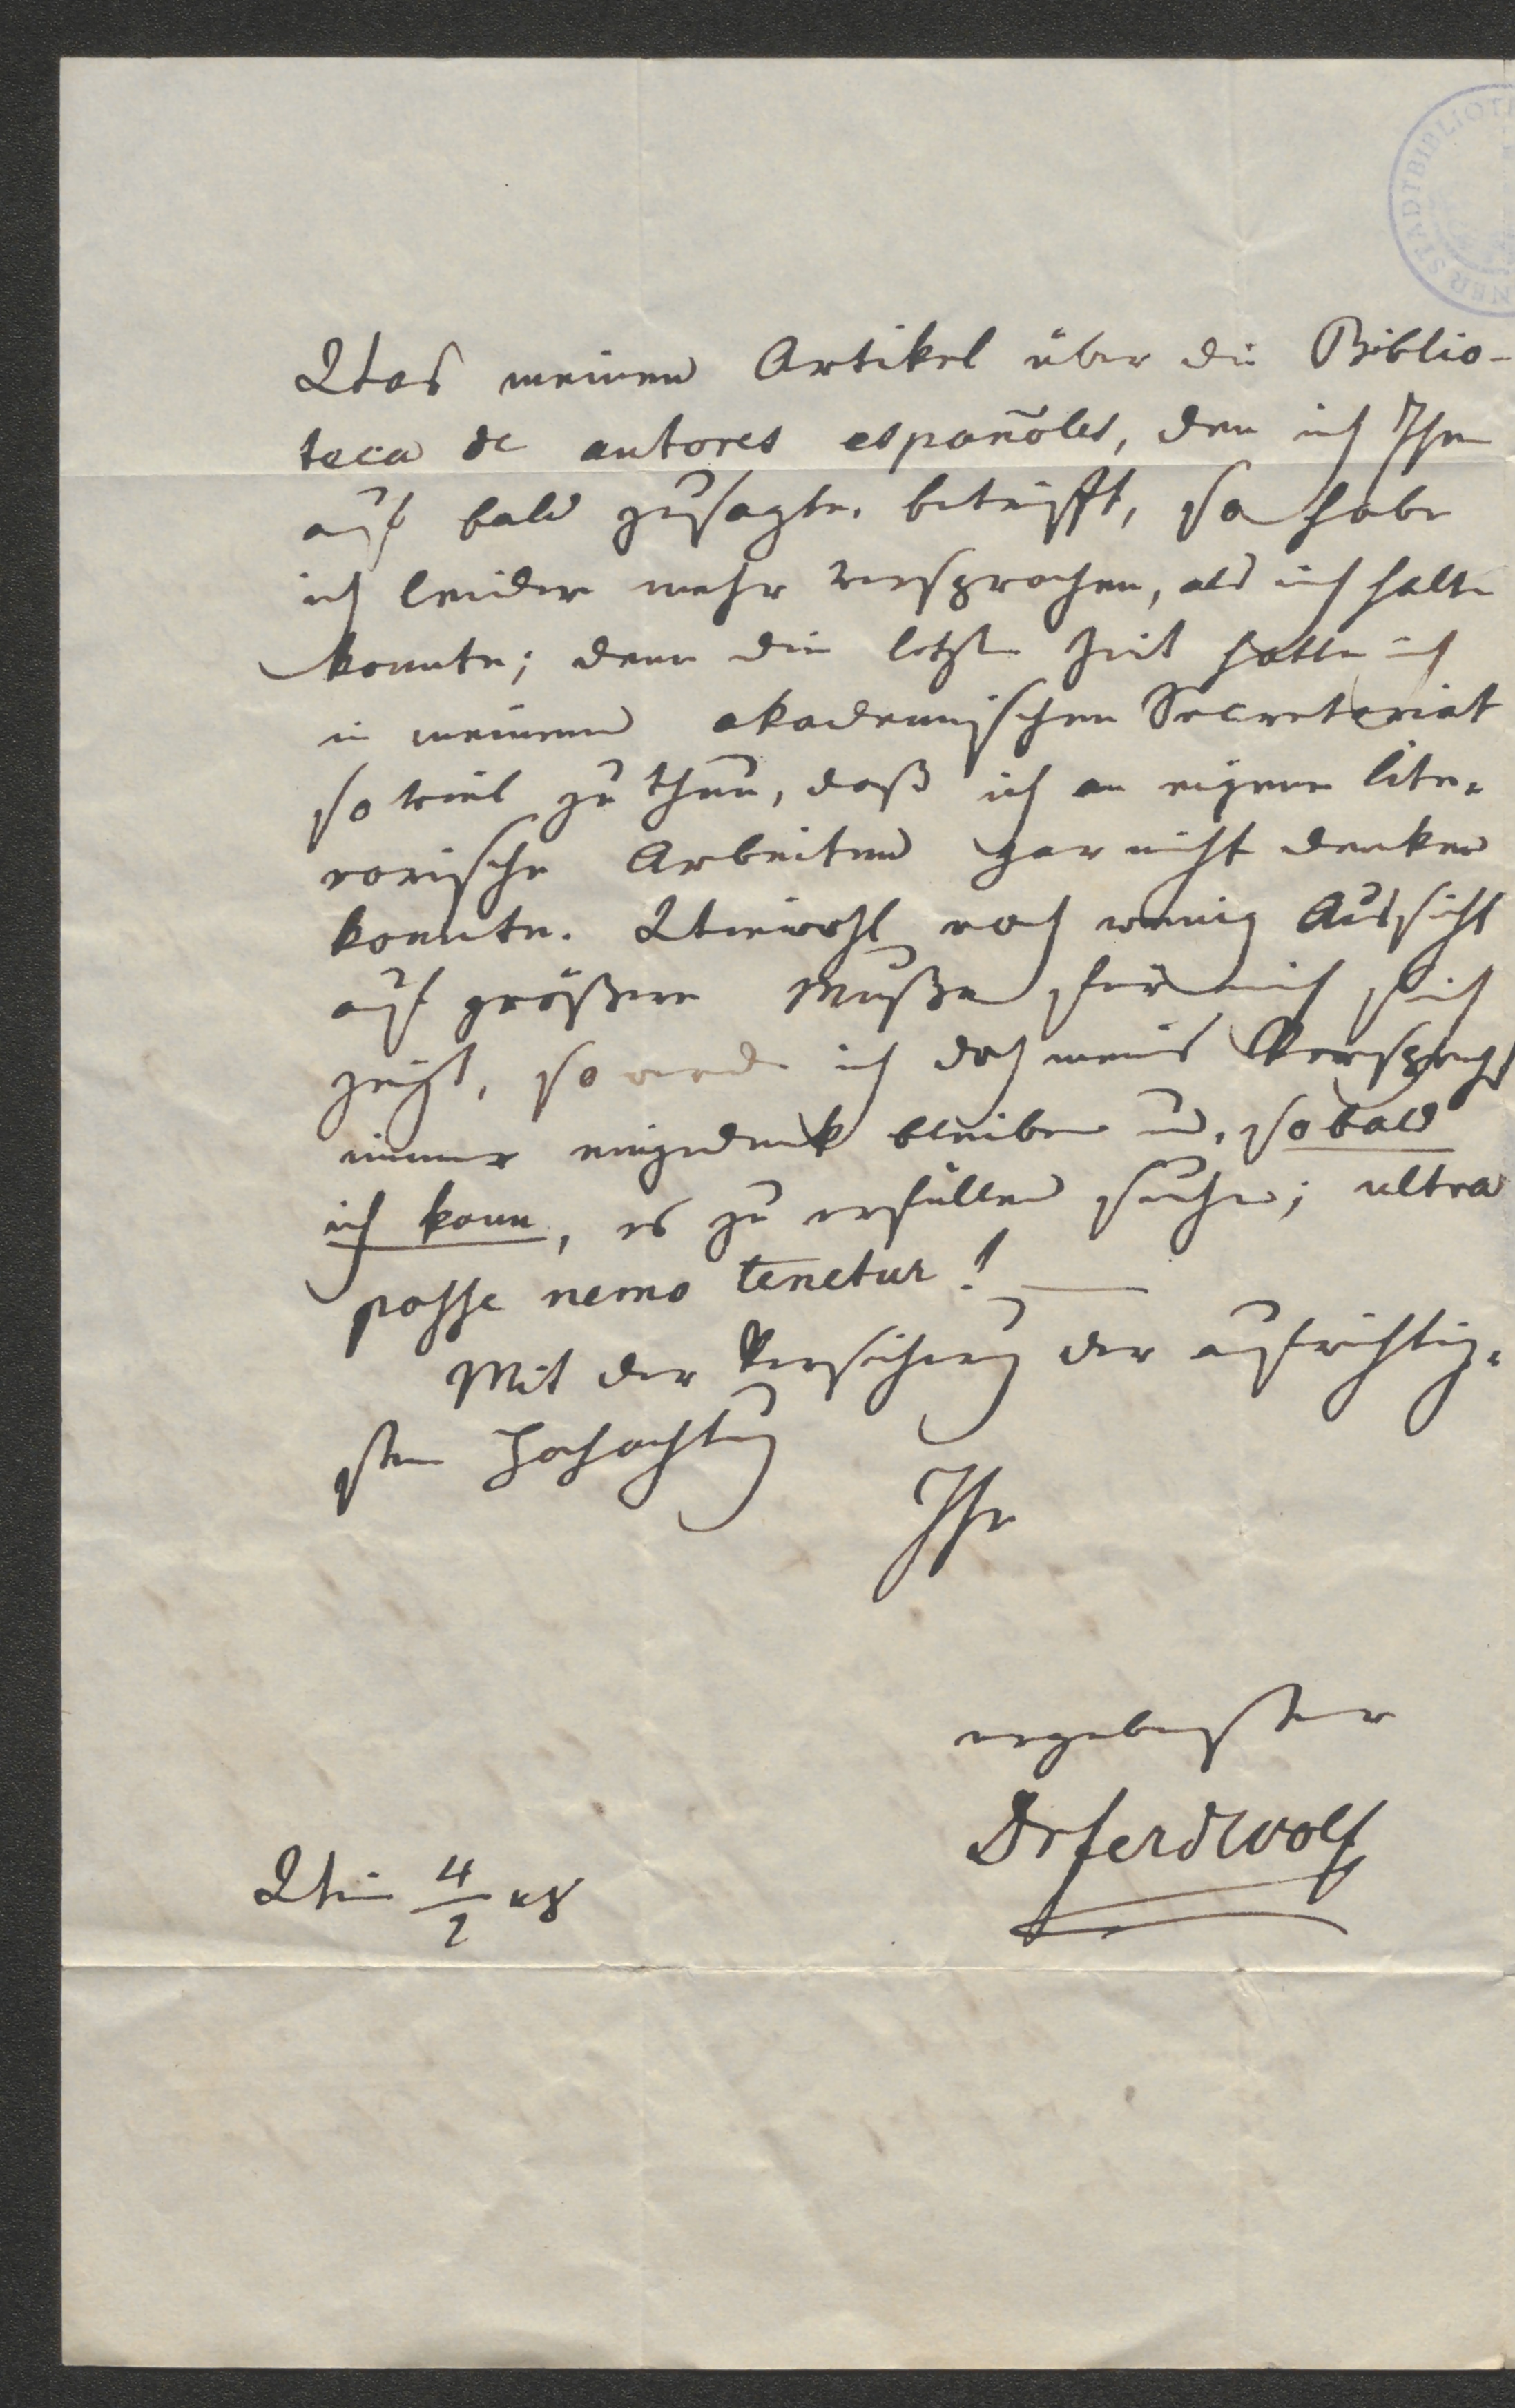 STADTBIBLIOT
Was meinen Artikel über die Biblio-
teca de autores españoles, den ich Ihn
auf bald zusagte, betrifft, so habe
ich leider mehr versprochen, als ich halte
konnte; denn die letzte Zeit hatte ich
in meinem akademischen Secretariat
so viel zu thun, daß ich an eigene lite-
rarische Arbeiten gar nicht denken
konnte. Wiewohl noch wenig Aussicht
auf größere Muße für mich sich
zeigt, so werde ich doch meines Versprechs
immer eingedenk bleiben u. sobald
ich kann, es zu erfüllen suchen; ultra
posse nemo tenetur! —
Mit der Versicherung der aufrichtig-
sten Hochachtung
Ihr
ergebenster
Dr Ferd Wolf
Wien 4/2 48